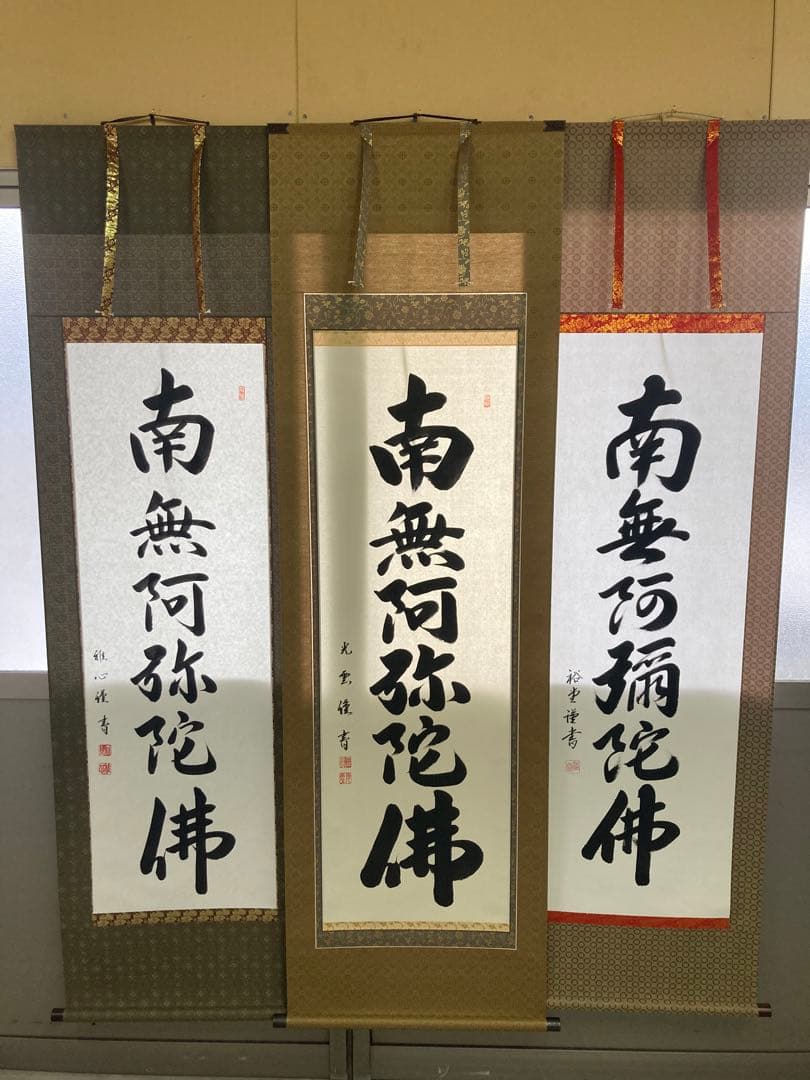 南無阿彌陀佛
裕堂謹書
南無阿弥陀佛
光雲謹書
南無阿弥陀佛
雅心謹書